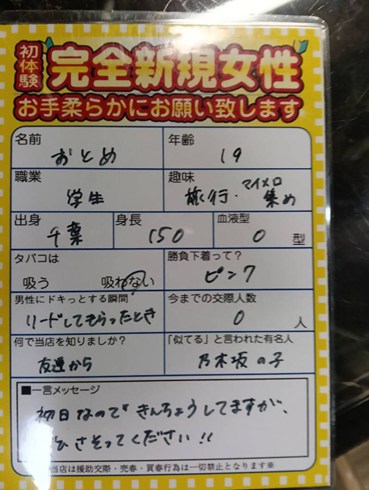 初体験 完全新規女性
お手柔らかにお願い致します
名前 おとめ 年齢 19
職業 学生 趣味 旅行・マイメロ集め
出身 千葉 身長 150 血液型 O 型
タバコは 吸う 吸わない 勝負下着って? ピンク
男性にドキっとする瞬間 リードしてもらったとき 今までの交際人数 0 人
何で当店を知りましたか? 友達から 「似てる」と言われた有名人 乃木坂の子
■一言メッセージ
初日なので きんちょうしてますが、
ぜひさそってください!!
当店は援助交際・売春・買春行為は一切禁止となります※